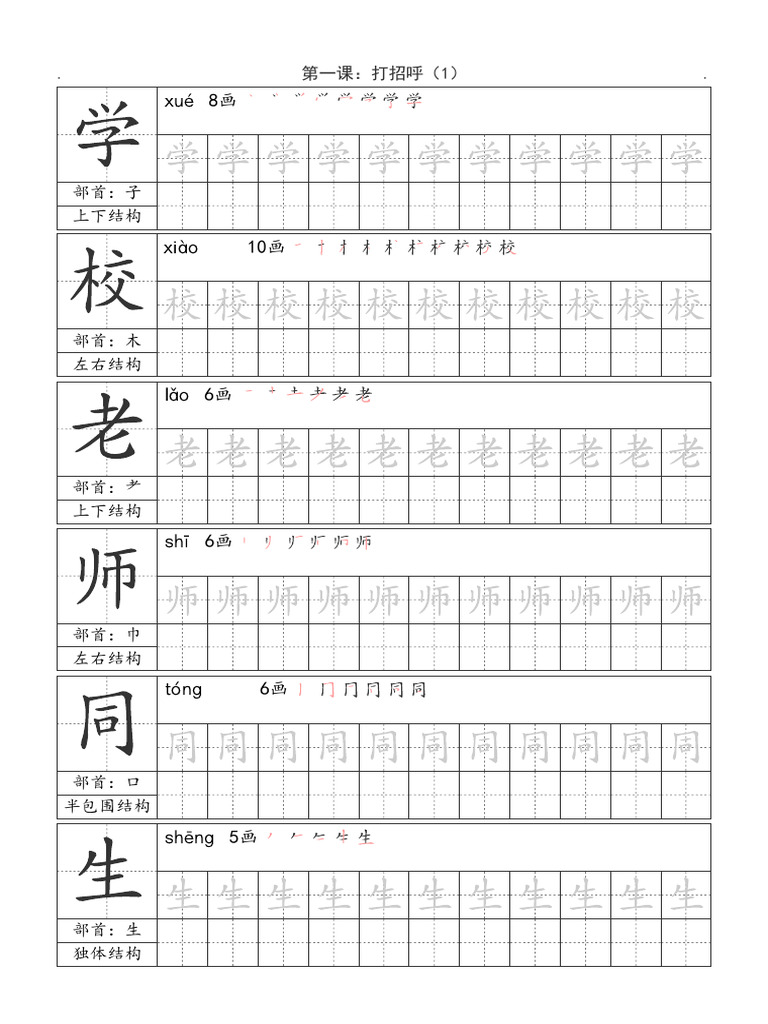 第一课：打招呼（1）
学
xué 8画
学 学 学 学 学 学 学 学 学 学 学
部首：子
上下结构
校
xiào 10画
校 校 校 校 校 校 校 校 校 校 校
部首：木
左右结构
老
lǎo 6画
老 老 老 老 老 老 老 老 老 老 老
部首：耂
上下结构
师
shī 6画
师 师 师 师 师 师 师 师 师 师 师
部首：巾
左右结构
同
tóng 6画
同 同 同 同 同 同 同 同 同 同 同
部首：口
半包围结构
生
shēng 5画
生 生 生 生 生 生 生 生 生 生 生
部首：生
独体结构